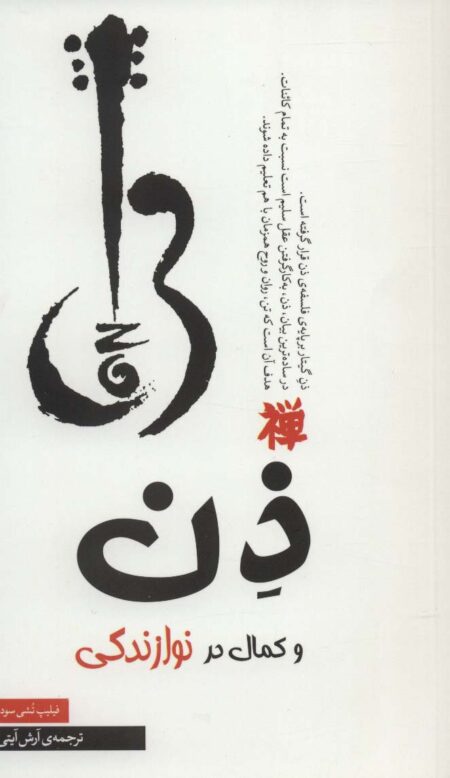 ذنِ گیتار بر پایه‌ی فلسفه‌ی ذن قرار گرفته است.
در ساده‌ترین بیان، ذن، به‌کارگرفتن عقل سلیم است نسبت به تمام کائنات.
هدف آن است که تن، روان و روح همزمان با هم تعلیم داده شوند.
禪
ذِن
و کمال در نوازندگی
فیلیپ تُشی سود
ترجمه‌ی آرش آیتی